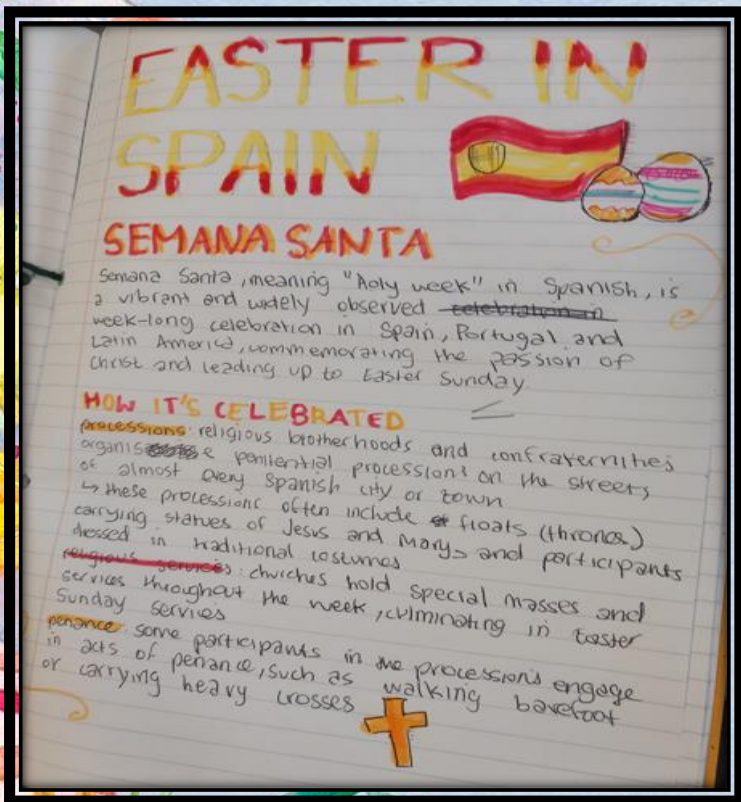 EASTER IN
SPAIN
SEMANA SANTA
Semana Santa, meaning "Holy week" in Spanish, is
a vibrant and widely observed celebration in
week-long celebration in Spain, Portugal and
Latin America, commemorating the passion of
Christ and leading up to Easter Sunday.
HOW IT'S CELEBRATED
processions: religious brotherhoods and confraternities
organise penitential processions on the streets
of almost every Spanish city or town
↳ these processions often include floats (thrones)
carrying statues of Jesus and Mary, and participants
dressed in traditional costumes
religious services: churches hold special masses and
services throughout the week, culminating in Easter
Sunday services
penance: some participants in the processions engage
in acts of penance, such as walking barefoot
or carrying heavy crosses